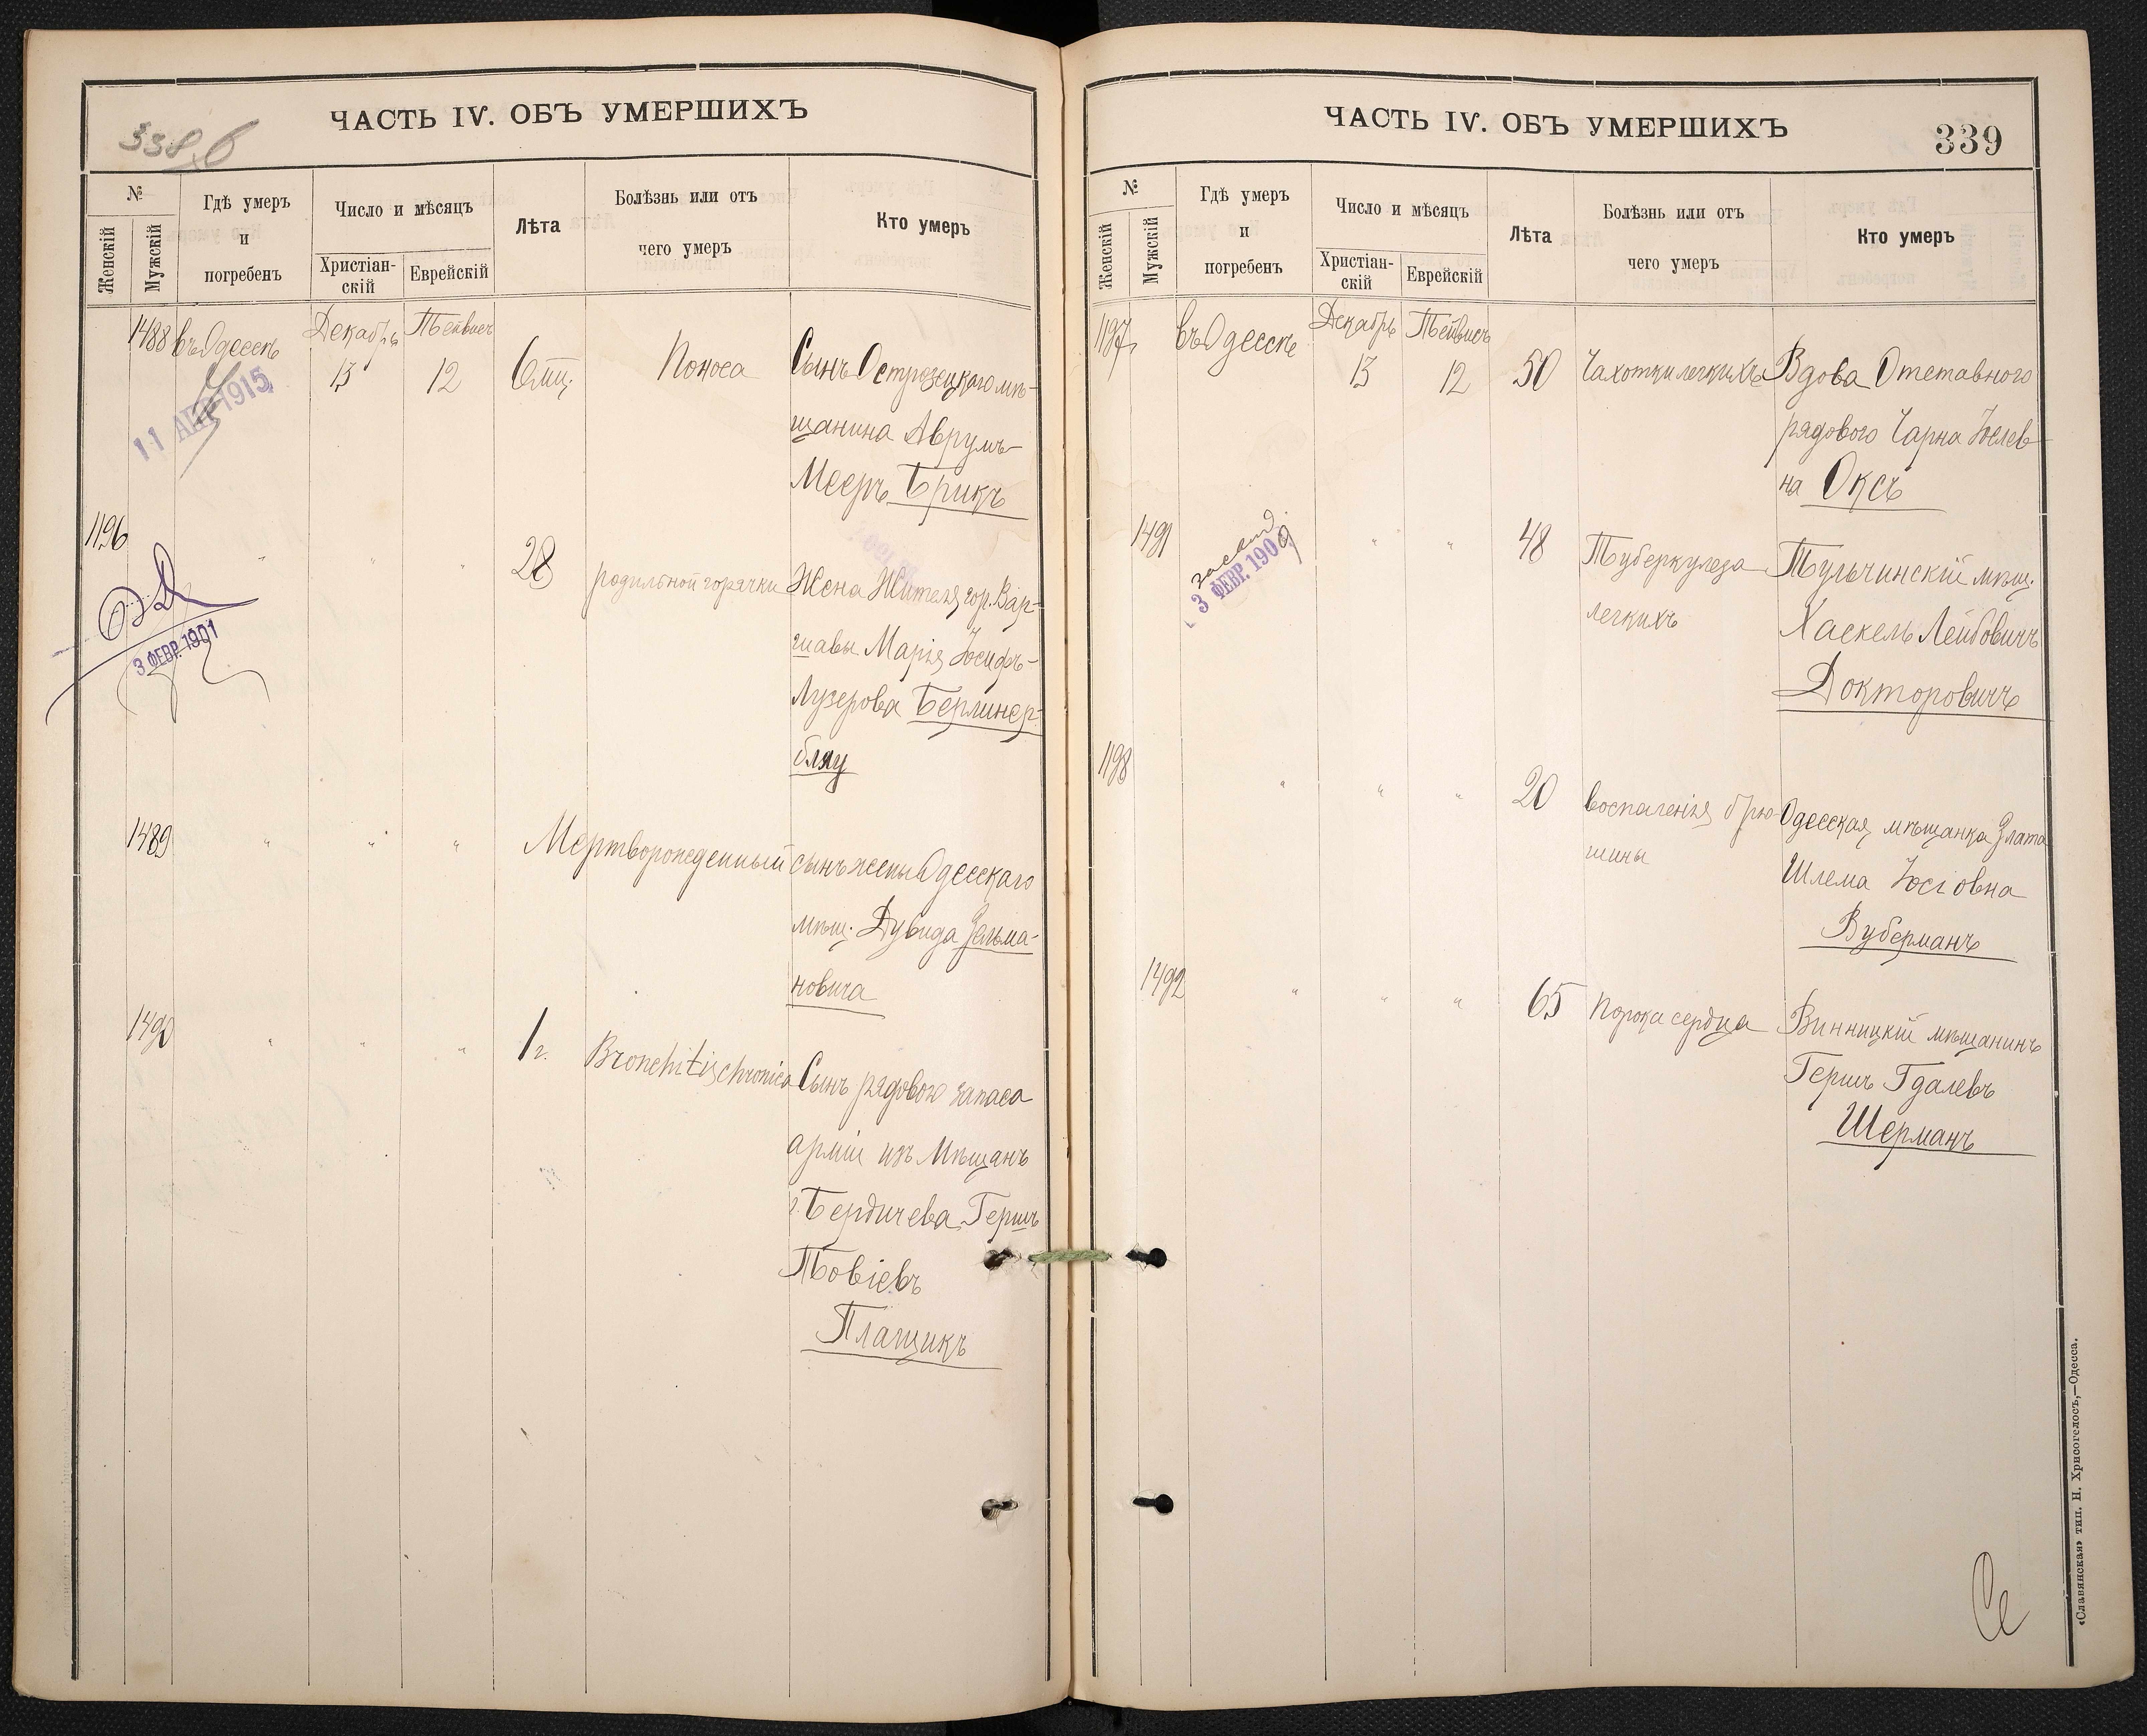 ЧАСТЬ IV. ОБЪ УМЕРШИХЪ
338 б
№
Женскій
Мужскій
Гдѣ умеръ
и
погребенъ
Число и мѣсяцъ
Христіан-
скій
Еврейскій
Лѣта
Болѣзнь или отъ
чего умеръ
Кто умеръ
1488 въ Одессѣ Декабрь Тейвисъ
13 12 6 мц. Поноса Сынъ Острозецкаго мѣ-
щанина Аврумъ-
Мееръ Брикъ
11 АПР 1915
1196 " " " 28 родильной горячки Жена Жителя гор. Вар-
шавы Марія Іосифъ-
Лузерова Берлинер-
блау
3 ФЕВР. 1901
1489 " " " Мертворожденный сынъ жены Одесскаго
мѣщ. Дувида Зельма-
новича
1490 " " " 1 г. Bronchitis chronica Сынъ рядового запаса
арміи изъ Мѣщанъ
г. Бердичева Гершъ
Товіевъ
Плащикъ
ЧАСТЬ IV. ОБЪ УМЕРШИХЪ
339
№
Женскій
Мужскій
Гдѣ умеръ
и
погребенъ
Число и мѣсяцъ
Христіан-
скій
Еврейскій
Лѣта
Болѣзнь или отъ
чего умеръ
Кто умеръ
1197 въ Одессѣ Декабрь Тейвисъ
13 12 50 Чахотки легкихъ Вдова Отставного
рядового Чарна Іослев-
на Оксъ
1491 " " 48 Туберкулеза Тульчинскій мѣщ.
легкихъ Хаскель Лейбовичъ
Докторовичъ
3 ФЕВР. 190
1198 " " " 20 воспаленія брю- Одесская мѣщанка Злата
шины Шлема Іосіовна
Вуберманъ
1492 " " " 65 порока сердца Винницкій мѣщанинъ
Гершъ Гдалевъ
Шерманъ
«Славянская» тип. Н. Хрисогелосъ,—Одесса.